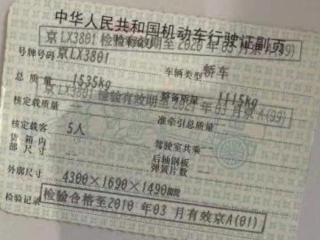 中华人民共和国机动车行驶证副页
京LX3801 检验有效期至2020年03月京A(99)
号牌号码 京LX3801 车辆类型 轿车
总质量 1535kg 整备质量 1115kg
京LX3801 检验有效期至2021年03月京A(99)
核定载质量 准牵引总质量
核定载客 5人 驾驶室共乘
货箱内部尺寸 后轴钢板弹簧片数
外廓尺寸 4300×1690×1490
检验记录 检验合格至2010年03月有效京A(01)